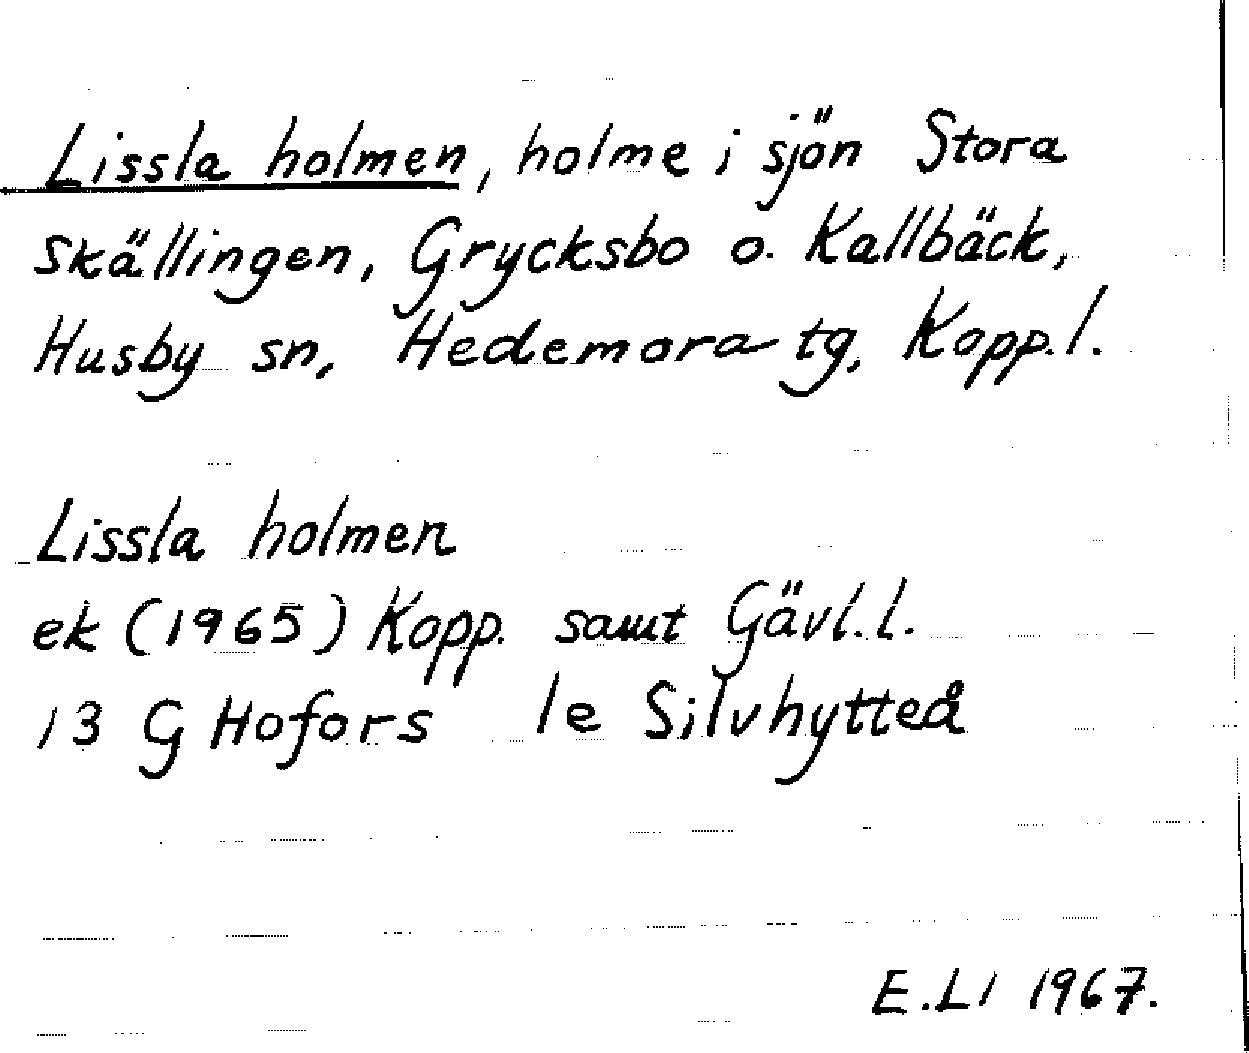 Lissla holmen, holme i sjön Stora
Skällingen, Grycksbo o. Kallbäck,
Husby sn, Hedemora tg, Kopp. l.
Lissla holmen
ek (1965) Kopp. samt Gävl. l.
13 G Hofors 1e Silvhytteå
E. Ll 1967.